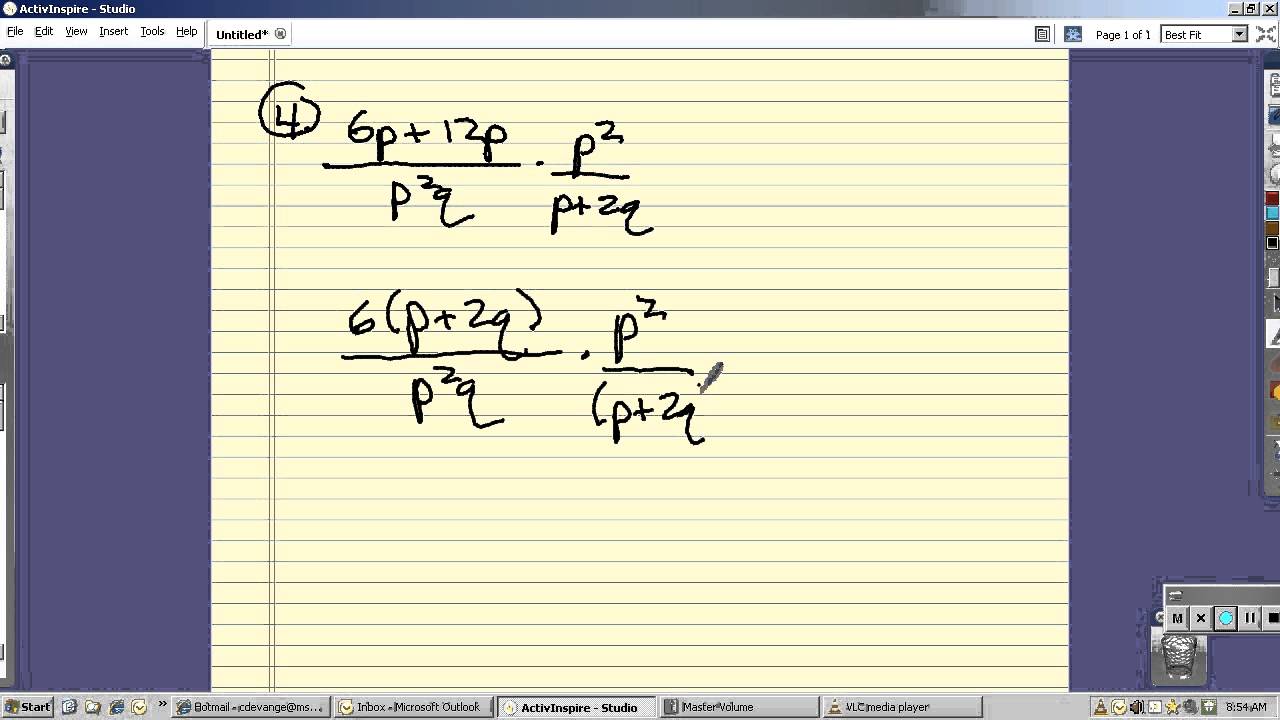 ActivInspire - Studio
File Edit View Insert Tools Help Untitled* Page 1 of 1 Best Fit
④ 6p+12p / p²q · p² / p+2q
6(p+2q) / p²q · p² / (p+2q
M
Start » Hotmail - cdevange@ms... Inbox - Microsoft Outlook ActivInspire - Studio MasterVolume VLC media player 8:54 AM